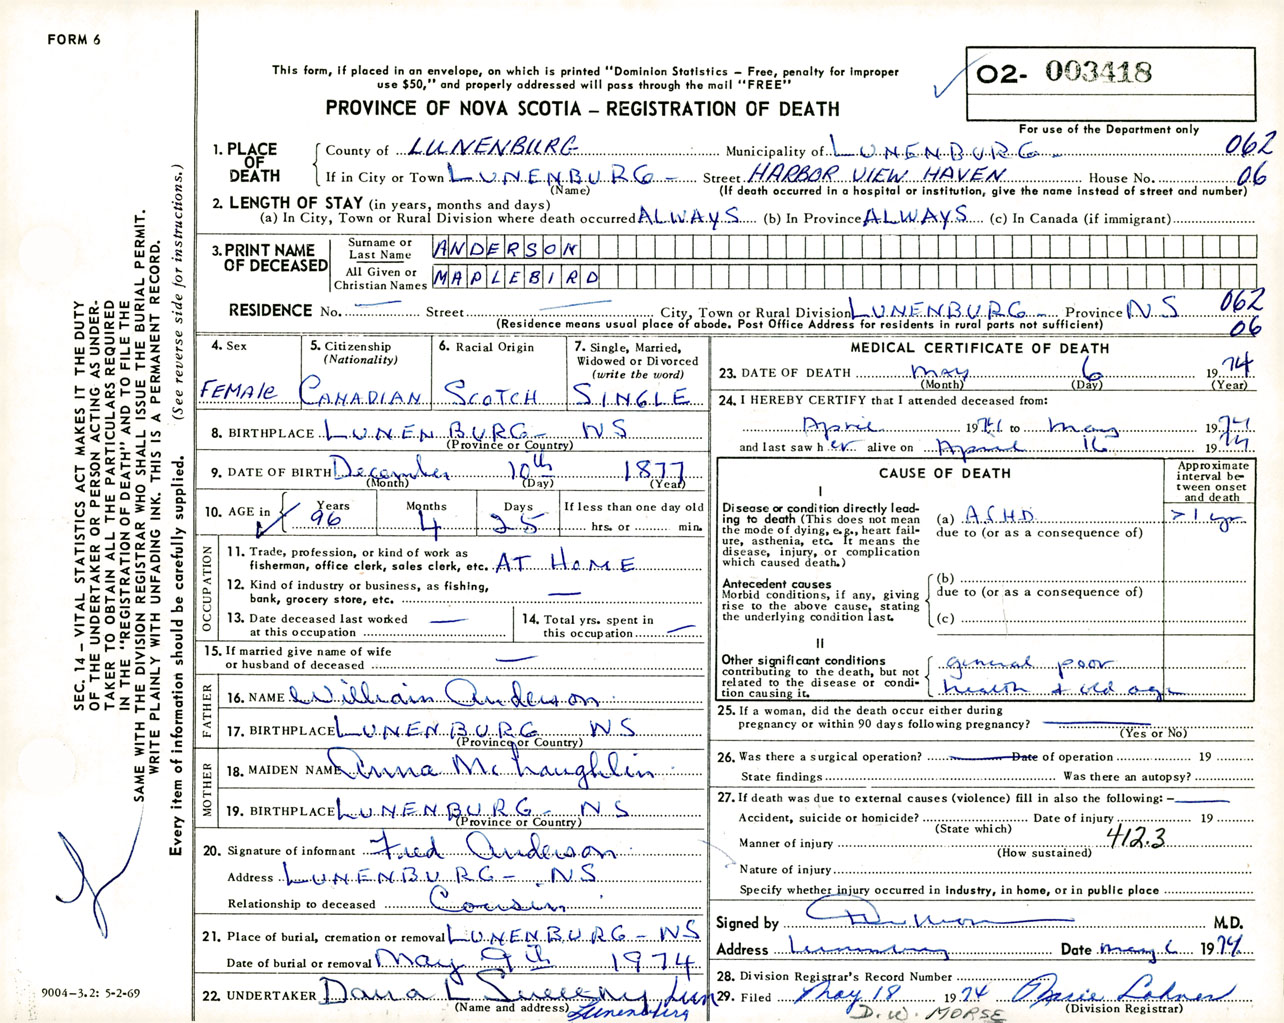 FORM 6
This form, if placed in an envelope, on which is printed "Dominion Statistics – Free, penalty for improper
use $50," and properly addressed will pass through the mail "FREE"
PROVINCE OF NOVA SCOTIA – REGISTRATION OF DEATH
02- 003418
For use of the Department only
1. PLACE OF DEATH
County of LUNENBURG Municipality of LUNENBURG 062
If in City or Town LUNENBURG Street HARBOR VIEW HAVEN House No. 06
(Name) (If death occurred in a hospital or institution, give the name instead of street and number)
2. LENGTH OF STAY (in years, months and days)
(a) In City, Town or Rural Division where death occurred ALWAYS (b) In Province ALWAYS (c) In Canada (if immigrant)
3. PRINT NAME OF DECEASED
Surname or Last Name ANDERSON
All Given or Christian Names MAPLEBIRD
RESIDENCE No. — Street — City, Town or Rural Division LUNENBURG Province NS 062
(Residence means usual place of abode. Post Office Address for residents in rural parts not sufficient) 06
4. Sex FEMALE
5. Citizenship (Nationality) CANADIAN
6. Racial Origin SCOTCH
7. Single, Married, Widowed or Divorced (write the word) SINGLE
8. BIRTHPLACE LUNENBURG – NS
(Province or Country)
9. DATE OF BIRTH December 10th 1877
(Month) (Day) (Year)
10. AGE in Years 96 Months 4 Days 25 If less than one day old
hrs. or min.
OCCUPATION
11. Trade, profession, or kind of work as
fisherman, office clerk, sales clerk, etc. AT HOME
12. Kind of industry or business, as fishing,
bank, grocery store, etc. —
13. Date deceased last worked
at this occupation —
14. Total yrs. spent in
this occupation —
15. If married give name of wife
or husband of deceased —
FATHER
16. NAME William Anderson
17. BIRTHPLACE LUNENBURG NS
(Province or Country)
MOTHER
18. MAIDEN NAME Anna McLaughlin
19. BIRTHPLACE LUNENBURG – NS
(Province or Country)
20. Signature of informant Fred Anderson
Address LUNENBURG – NS
Relationship to deceased Cousin
21. Place of burial, cremation or removal LUNENBURG – NS
Date of burial or removal May 9th 1974
22. UNDERTAKER Dana L Sweeny Lun
(Name and address) Lunenburg
MEDICAL CERTIFICATE OF DEATH
23. DATE OF DEATH May 6 1974
(Month) (Day) (Year)
24. I HEREBY CERTIFY that I attended deceased from:
April 19 to May 1974
and last saw her alive on April 16 1974
CAUSE OF DEATH
Approximate interval between onset and death
I
Disease or condition directly lead-
ing to death (This does not mean
the mode of dying, e.g., heart fail-
ure, asthenia, etc. It means the
disease, injury, or complication
which caused death.)
(a) ASHD > 1 yr
due to (or as a consequence of)
Antecedent causes
Morbid conditions, if any, giving
rise to the above cause, stating
the underlying condition last.
(b)
due to (or as a consequence of)
(c)
II
Other significant conditions
contributing to the death, but not
related to the disease or condi-
tion causing it.
general poor
health & old age
25. If a woman, did the death occur either during
pregnancy or within 90 days following pregnancy? —
(Yes or No)
26. Was there a surgical operation? Date of operation 19
State findings Was there an autopsy?
27. If death was due to external causes (violence) fill in also the following: –
Accident, suicide or homicide? Date of injury 19
(State which)
Manner of injury 412.3
(How sustained)
Nature of injury
Specify whether injury occurred in industry, in home, or in public place
Signed by M.D.
Address Lunenburg Date May 6 1974
28. Division Registrar's Record Number
29. Filed May 18 1974
(Division Registrar)
D. W. MORSE
SEC. 14 – VITAL STATISTICS ACT MAKES IT THE DUTY
OF THE UNDERTAKER OR PERSON ACTING AS UNDER-
TAKER TO OBTAIN ALL THE PARTICULARS REQUIRED
IN THE "REGISTRATION OF DEATH" AND TO FILE THE
SAME WITH THE DIVISION REGISTRAR WHO SHALL ISSUE THE BURIAL PERMIT.
WRITE PLAINLY WITH UNFADING INK. THIS IS A PERMANENT RECORD.
Every item of information should be carefully supplied. (See reverse side for instructions.)
9004-3.2: 5-2-69